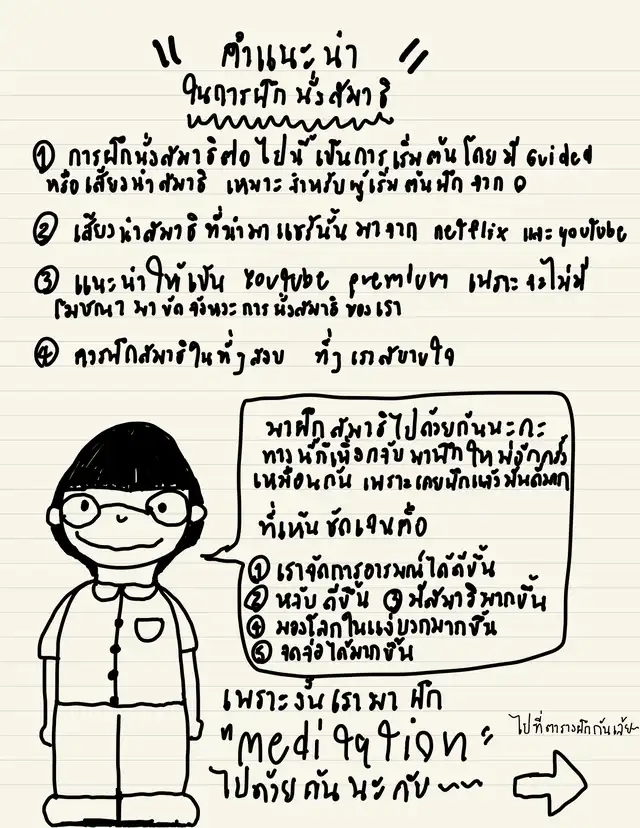 คำแนะนำ
ในการฝึกนั่งสมาธิ
① การฝึกนั่งสมาธิต่อไปนี้ เป็นการเริ่มต้นโดยมี Guided
หรือ เสียงนำสมาธิ เหมาะสำหรับผู้เริ่มต้นฝึกจาก 0
② เสียงนำสมาธิที่นำมาแชร์นั้น มาจาก netflix และ youtube
③ แนะนำให้เป็น Youtube premium เพราะจะไม่มี
โฆษณา มาขัดจังหวะการนั่งสมาธิของเรา
④ ควรฝึกสมาธิในที่ๆสงบ ที่ๆเราสบายใจ
มาฝึกสมาธิไปด้วยกันนะคะ
ทางนี้ก็เพิ่งกลับมาฝึกใหม่อีกครั้ง
เหมือนกัน เพราะเคยฝึกแล้วมันดีมาก
ที่เห็นชัดเจนคือ
① เราจัดการอารมณ์ได้ดีขึ้น
② หลับดีขึ้น ③ มีสมาธิมากขึ้น
④ มองโลกในแง่บวกมากขึ้น
⑤ จดจ่อได้มากขึ้น
เพราะงั้นเรามาฝึก
"meditation"
ไปด้วยกันนะคับ~~
ไปที่ตารางฝึกกันเล้ย~